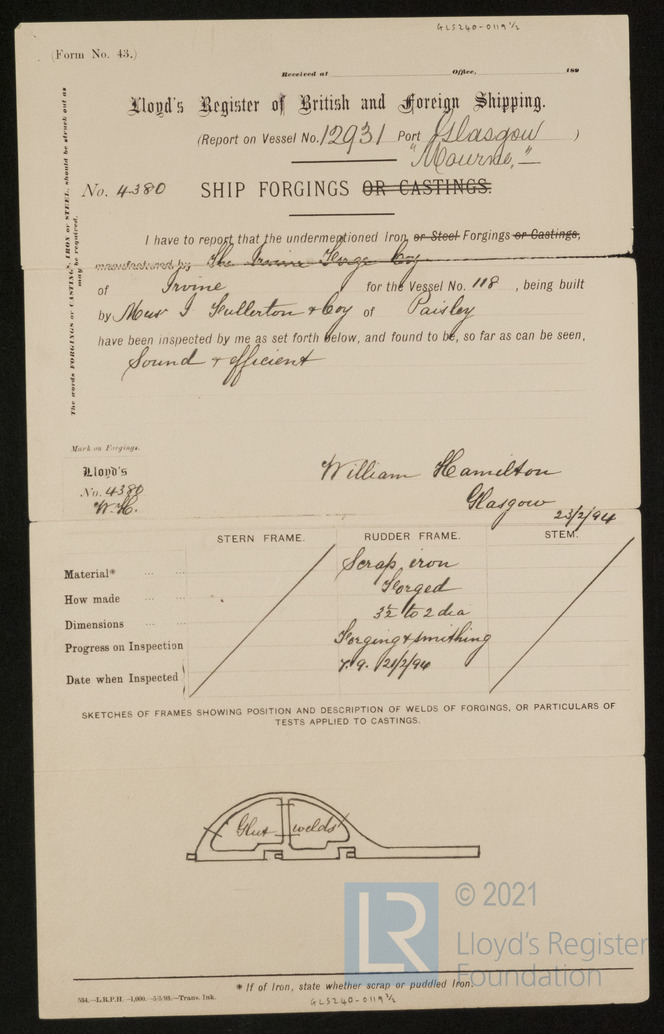 GLS240-0119 1/2
(Form No. 43.)
Received at Office, 189
Lloyd's Register of British and Foreign Shipping.
(Report on Vessel No. 12931 Port Glasgow)
"Mourne,"
No. 4380 SHIP FORGINGS OR CASTINGS.
The words FORGINGS or CASTINGS, IRON or STEEL, should be struck out as
may be required.
I have to report that the undermentioned Iron or Steel Forgings or Castings,
manufactured by The Irvine Forge Coy
of Irvine for the Vessel No. 118, being built
by Messrs J Fullerton & Coy of Paisley
have been inspected by me as set forth below, and found to be, so far as can be seen,
Sound & efficient
Mark on Forgings.
Lloyd's
No. 4380
W.H.
William Hamilton
Glasgow
23/2/94
STERN FRAME. RUDDER FRAME. STEM.
Material* Scrap iron
How made Forged
Dimensions 3½ to 2 dia
Progress on Inspection Forging & smithing
Date when Inspected 21/2/94
SKETCHES OF FRAMES SHOWING POSITION AND DESCRIPTION OF WELDS OF FORGINGS, OR PARTICULARS OF
TESTS APPLIED TO CASTINGS.
Glut welds
LR
© 2021
Lloyd's Register
Foundation
* If of Iron, state whether scrap or puddled Iron.
534.—L.R.P.H.—1,000.—5/5/93.—Trans. Ink.
GLS240-0119 2/2